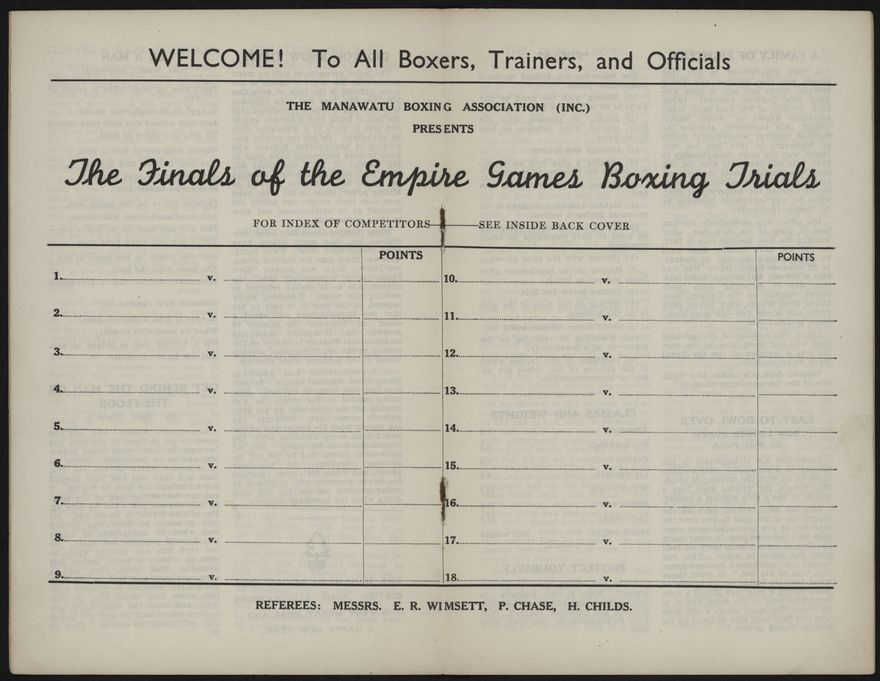 WELCOME! To All Boxers, Trainers, and Officials
THE MANAWATU BOXING ASSOCIATION (INC.)
PRESENTS
The Finals of the Empire Games Boxing Trials
FOR INDEX OF COMPETITORS——SEE INSIDE BACK COVER
POINTS POINTS
1. v. 10. v.
2. v. 11. v.
3. v. 12. v.
4. v. 13. v.
5. v. 14. v.
6. v. 15. v.
7. v. 16. v.
8. v. 17. v.
9. v. 18. v.
REFEREES: MESSRS. E. R. WIMSETT, P. CHASE, H. CHILDS.